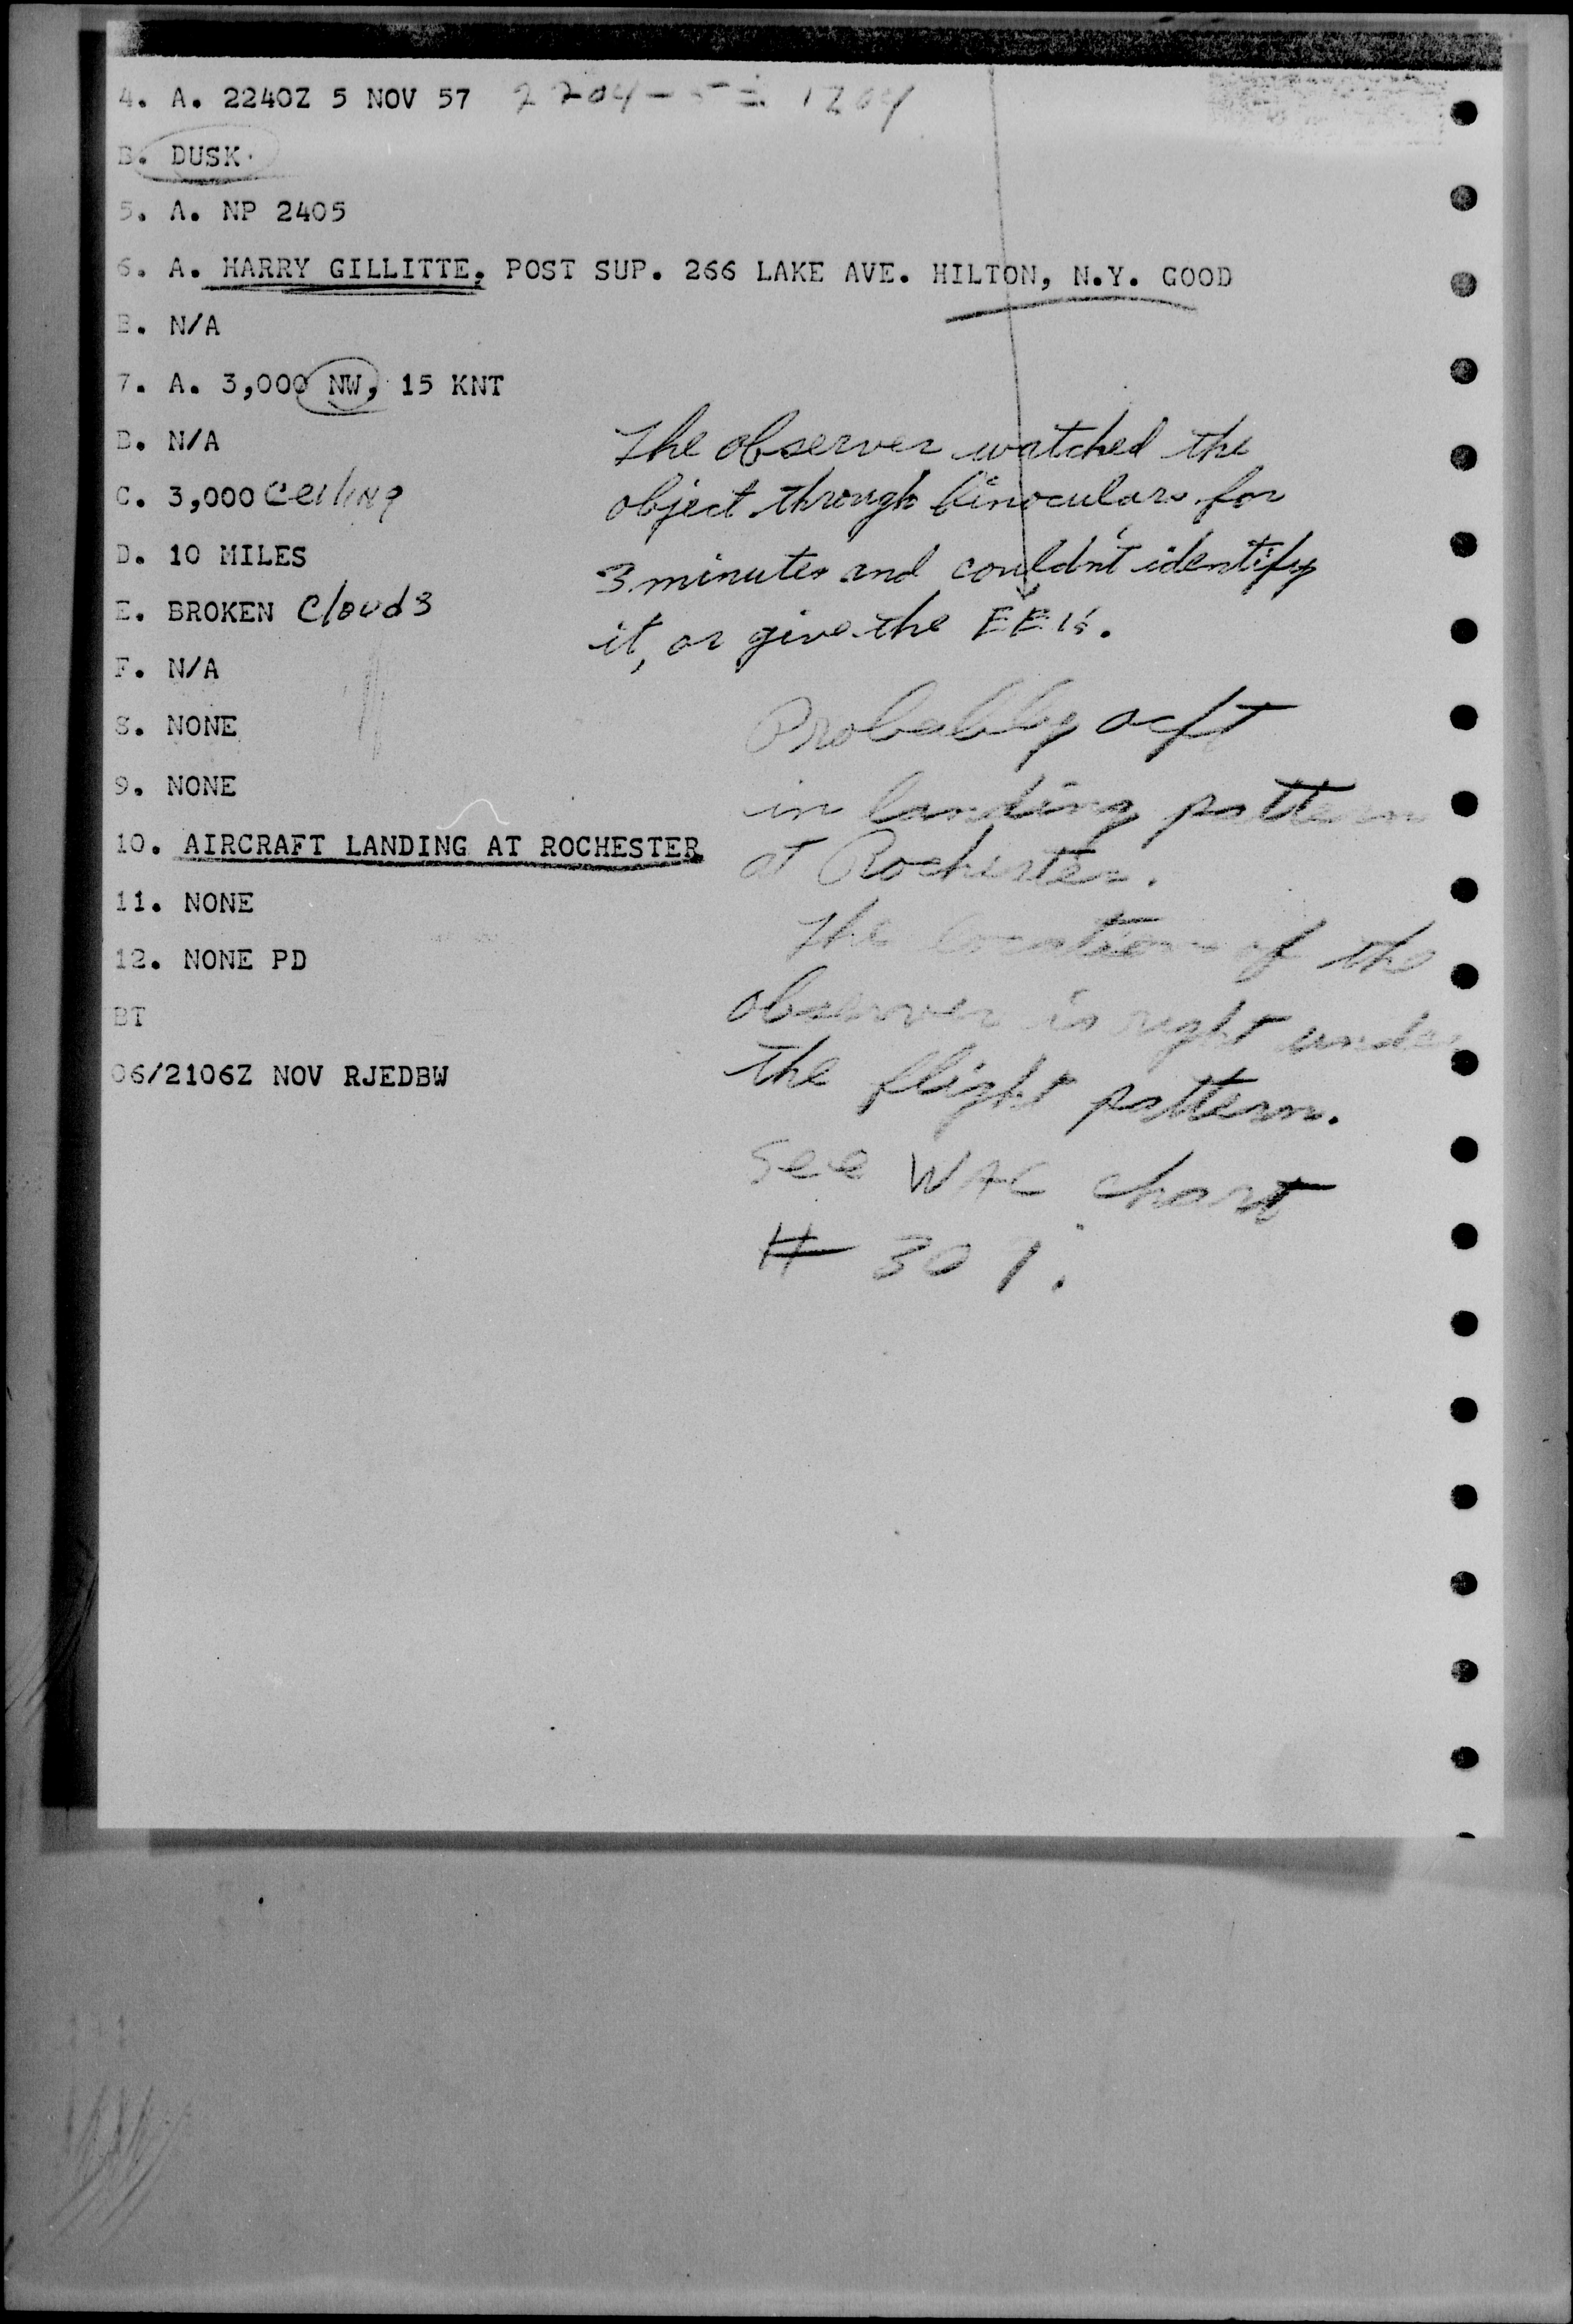 4. A. 2240Z 5 NOV 57 2204 - 5 = 1704
B. DUSK.
5. A. NP 2405
6. A. HARRY GILLITTE, POST SUP. 266 LAKE AVE. HILTON, N.Y. GOOD
B. N/A
7. A. 3,000 NW, 15 KNT
B. N/A
C. 3,000 Ceiling
D. 10 MILES
E. BROKEN Clouds
F. N/A
8. NONE
9. NONE
10. AIRCRAFT LANDING AT ROCHESTER
11. NONE
12. NONE PD
BT
06/2106Z NOV RJEDBW
The observer watched the
object through binoculars for
3 minutes and couldn't identify
it, or give the EEI's.
Probably acft
in landing pattern
at Rochester.
The location of the
observer is right under
the flight pattern.
See WAC chart
# 307.